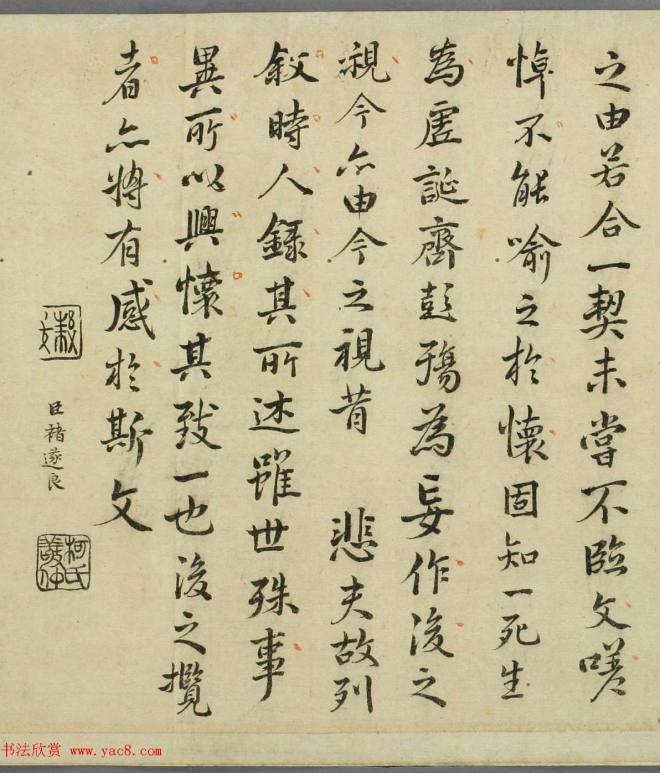 之由若合一契未嘗不臨文嗟
悼不能喻之於懷固知一死生
為虛誕齊彭殤為妄作後之
視今亦由今之視昔 悲夫故列
敘時人錄其所述雖世殊事
異所以興懷其致一也後之攬
者亦將有感於斯文
臣褚遂良
柯氏
书法欣赏 www.yac8.com